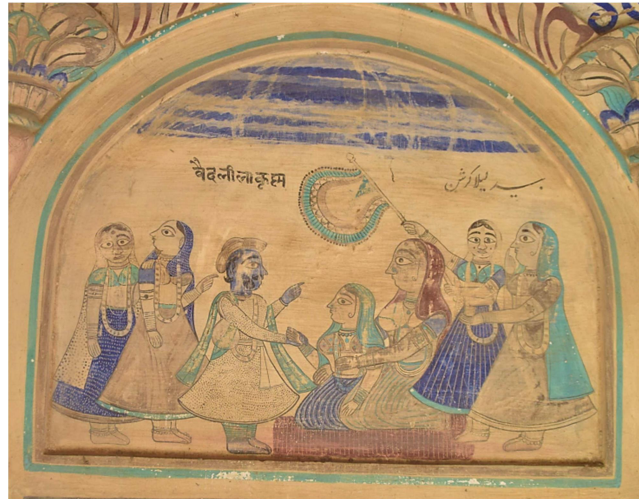 वैदलीलाकृष्ण بید لیلا کرشن